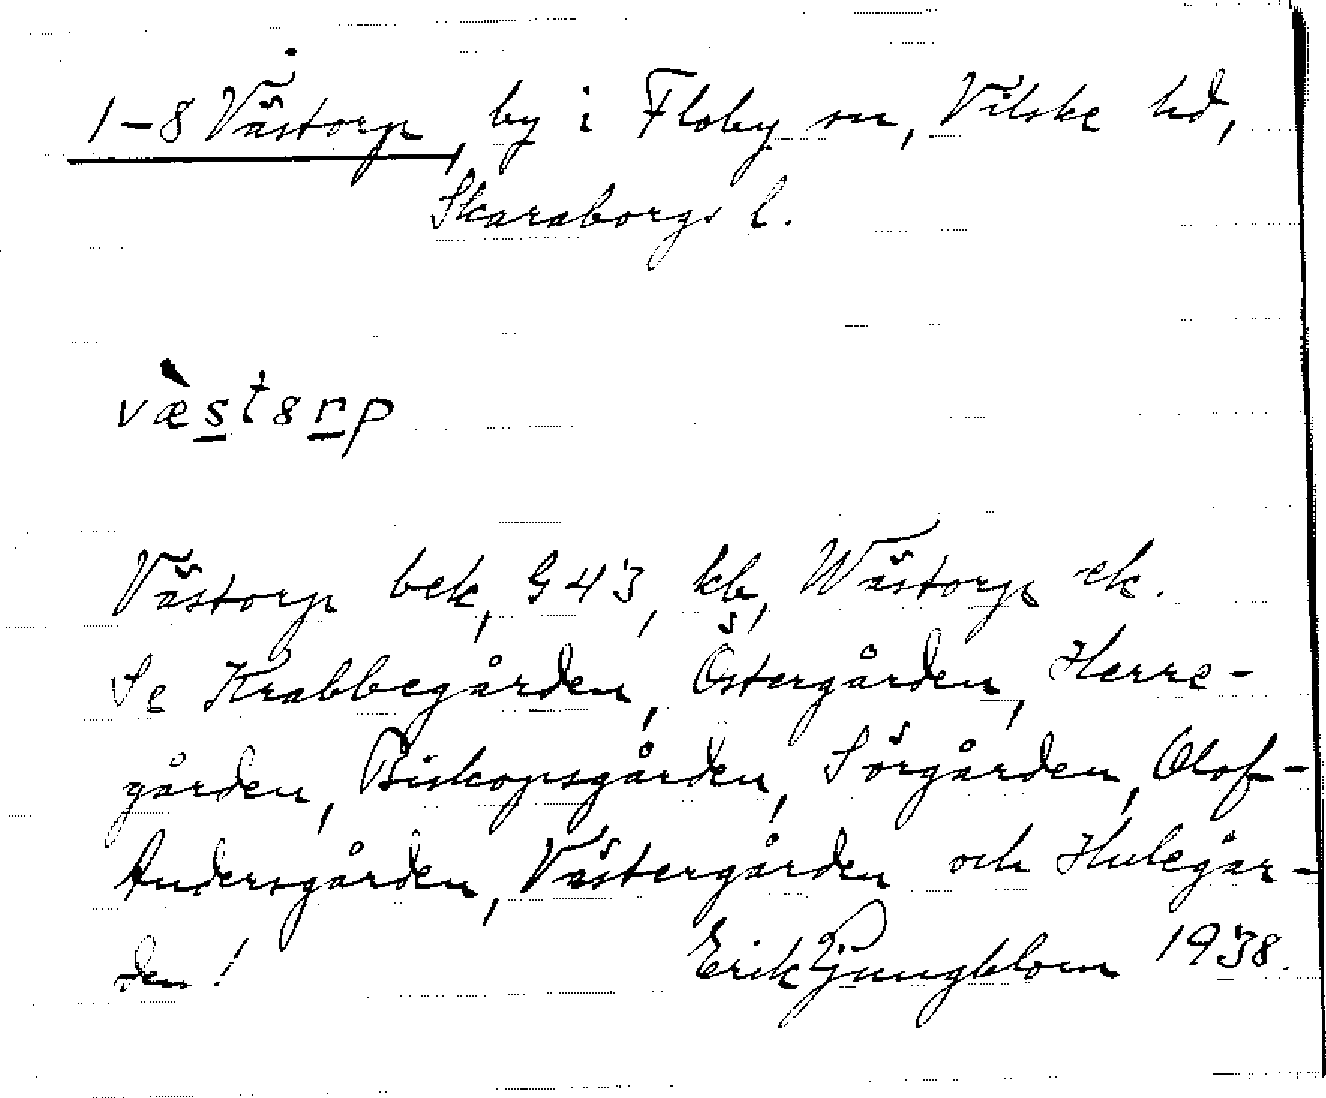 1-8 Västorp, by i Floby sn, Vilske hd,
Skaraborgs l.
væ̀st8rp
Västorp bek, G43, kb, Wästorp ek.
Se Krabbegården, Östergården, Herre-
gården, Biskopsgården, Sörgården, Olof-
Andersgården, Västergården och Hulegår-
den!
Erik Ljungblom 1938.